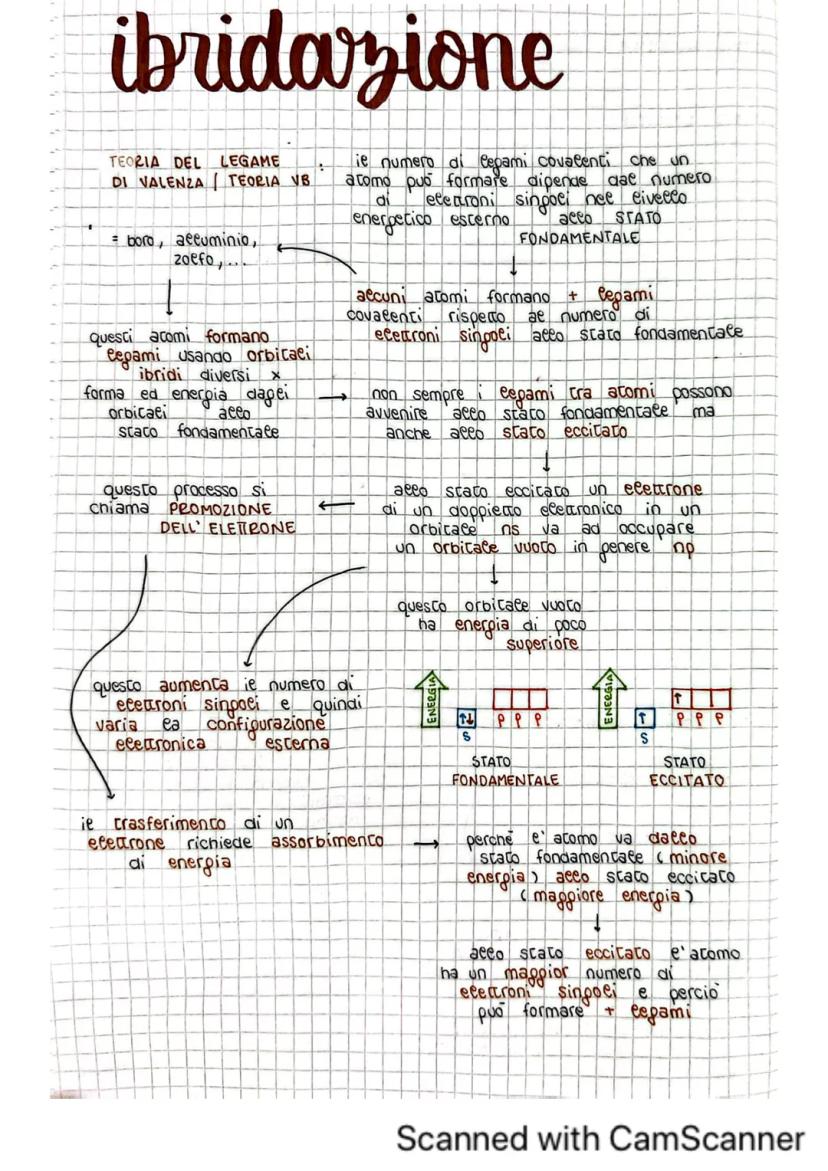 ibridazione
TEORIA DEL LEGAME
DI VALENZA / TEORIA VB :
il numero di legami covalenti che un
atomo può formare dipende dal numero
di elettroni singoli nel livello
energetico esterno allo STATO
FONDAMENTALE
alcuni atomi formano + legami
covalenti rispetto al numero di
elettroni singoli allo stato fondamentale
= boro, alluminio,
zolfo, ...
questi atomi formano
legami usando orbitali
ibridi diversi x
forma ed energia dagli
orbitali allo
stato fondamentale
non sempre i legami tra atomi possono
avvenire allo stato fondamentale ma
anche allo stato eccitato
allo stato eccitato un elettrone
di un doppietto elettronico in un
orbitale ns va ad occupare
un orbitale vuoto in genere np
questo processo si
chiama PROMOZIONE
DELL' ELETTRONE
questo orbitale vuoto
ha energia di poco
superiore
questo aumenta il numero di
elettroni singoli e quindi
varia la configurazione
elettronica esterna
ENERGIA
↑↓
S
P P P
STATO
FONDAMENTALE
ENERGIA
↑
S
↑
P P P
STATO
ECCITATO
il trasferimento di un
elettrone richiede assorbimento
di energia
perché l'atomo va dallo
stato fondamentale (minore
energia) allo stato eccitato
(maggiore energia)
allo stato eccitato l'atomo
ha un maggior numero di
elettroni singoli e perciò
può formare + legami
Scanned with CamScanner